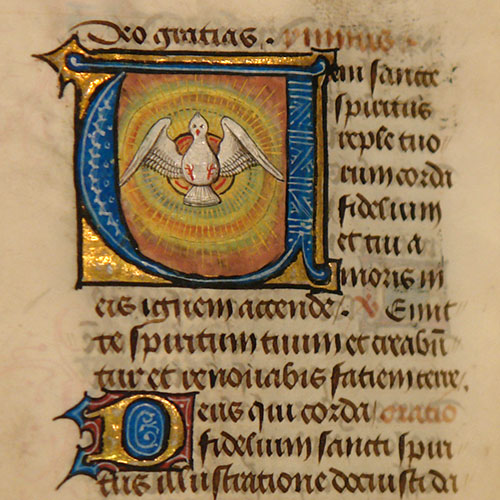 Deo gratias.
Ueni sancte
spiritus
reple tuo
rum corda
fidelium
et tui a
moris in
eis ignem accende. V Emit
te spiritum tuum et creabūn
tur et renouabis faciem terre.
Deus qui corda oratio
fidelium sancti spiri
tus illustratione docuisti da